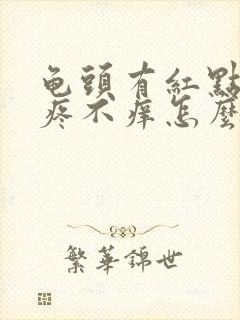 龟頭有紅點
疼不痒怎麼
繁華錦世